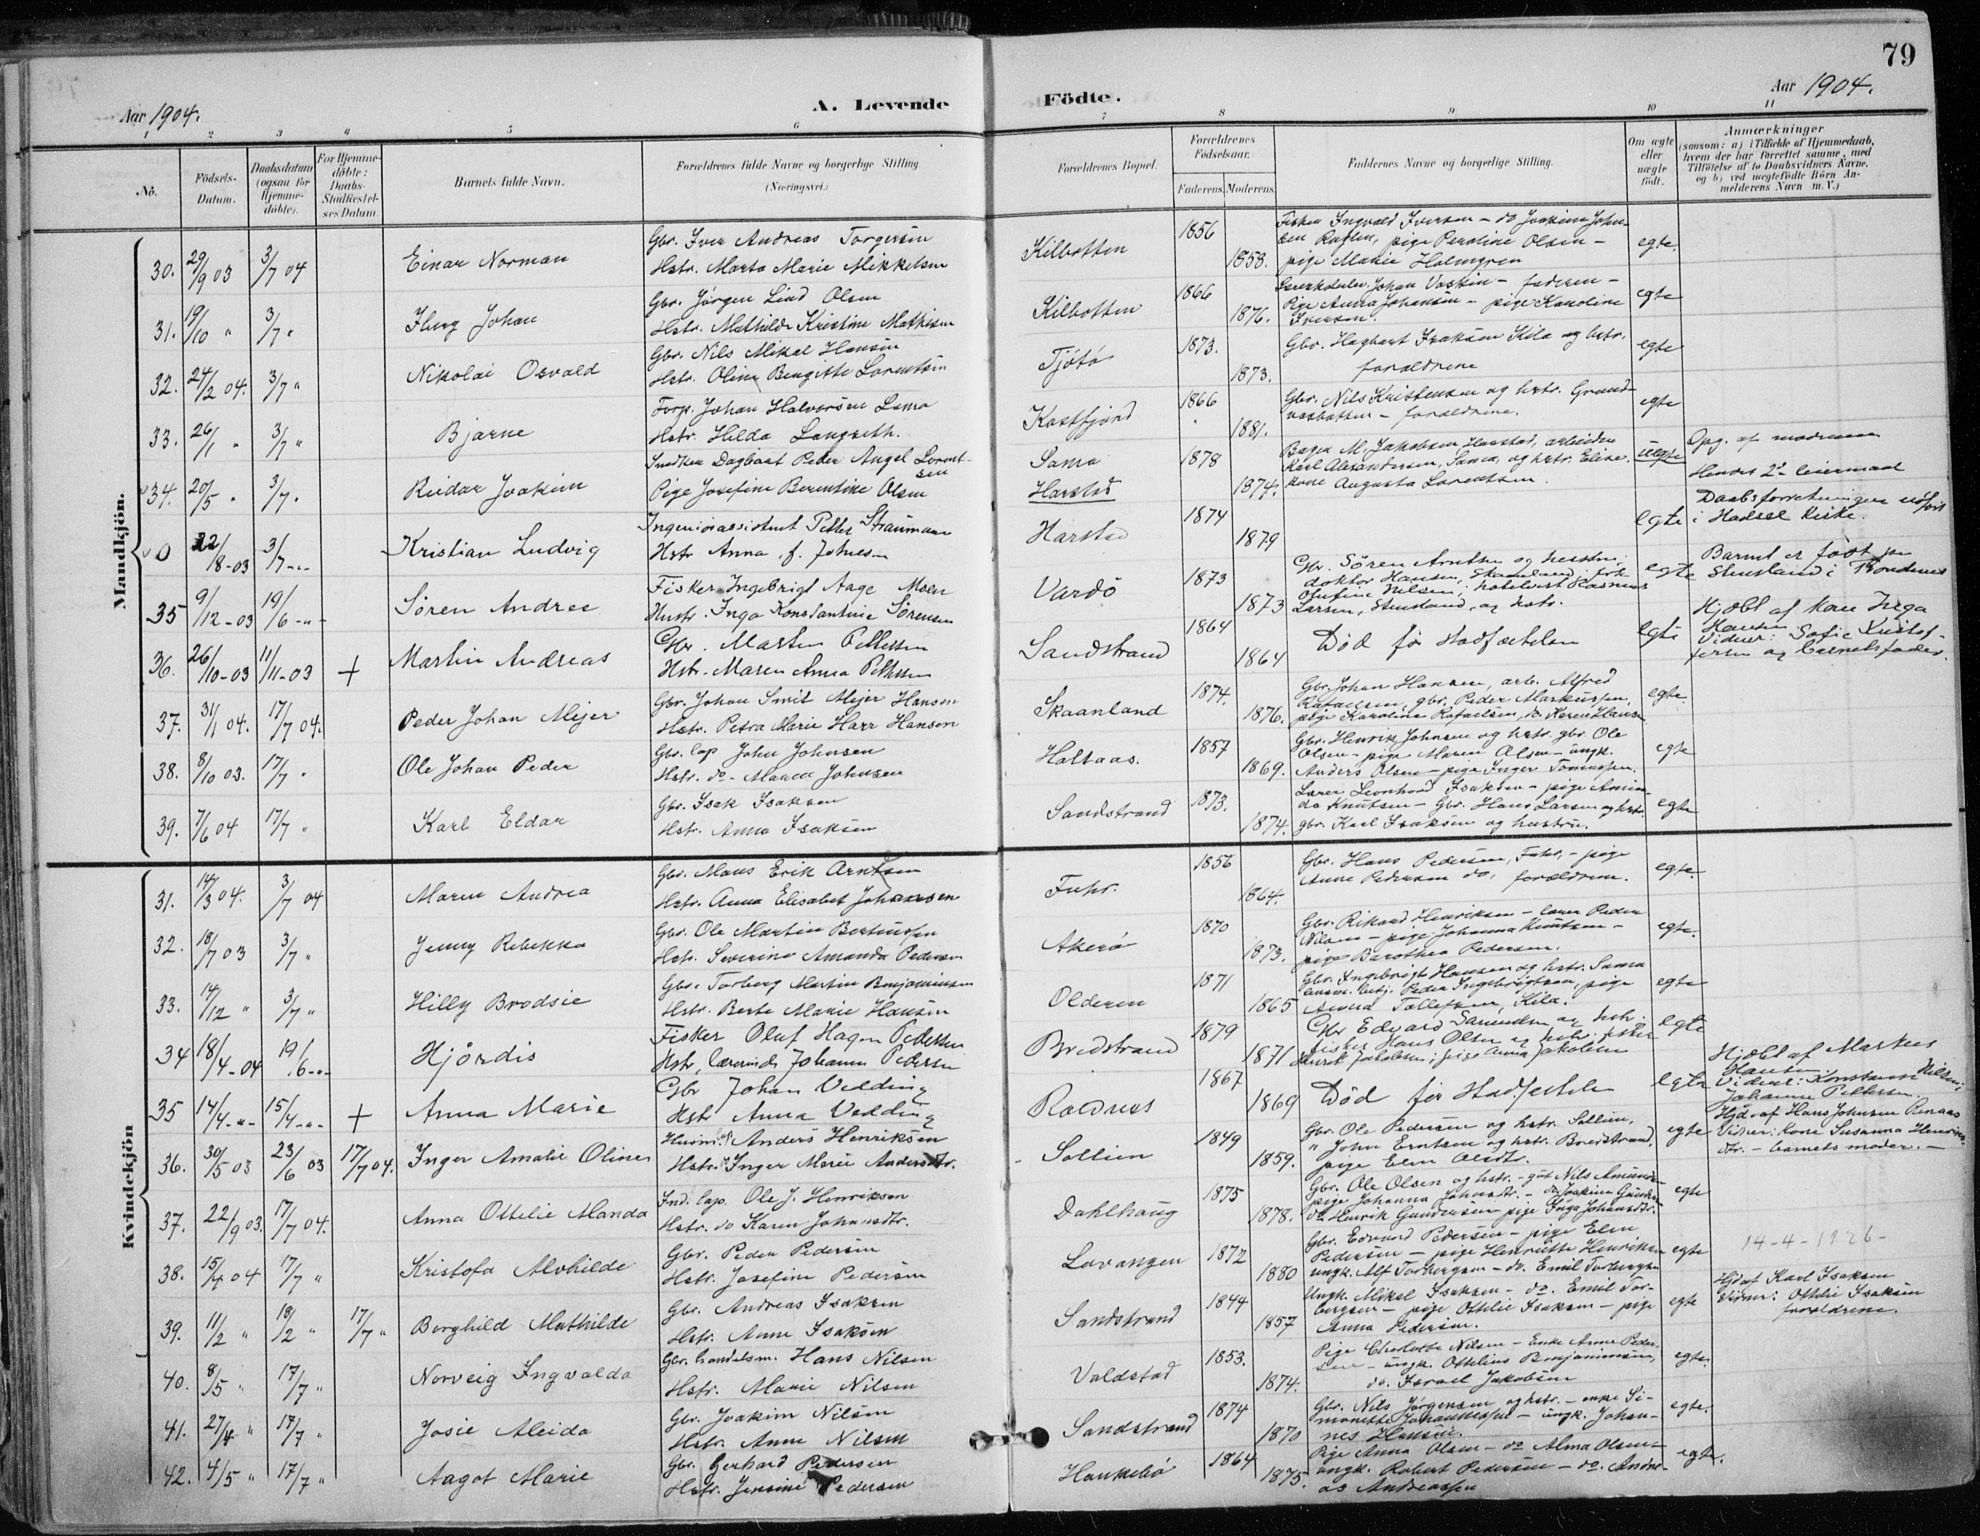 79
Aar 1904.
A. Levende Födte.
Aar 1904.
1 2 3 4 5 6 7 8 9 10 11
No.
Födsels-Datum.
Daabsdatum (ogsaa for Hjemmedöbte).
For Hjemmedöbte: Daabs-Stadfæstelses Datum.
Barnets fulde Navn.
Forældrenes fulde Navne og borgerlige Stilling. (Næringsvei.)
Forældrenes Bopæl.
Forældrenes Födselsaar.
Faderens. Moderens.
Faddernes Navne og borgerlige Stilling.
Om ægte eller uægte födt.
Anmærkninger
(saasom: a) i Tilfælde af Hjemmedaab, hvem der har forrettet samme, med Tilföielse af to Daabsvidners Navne, og b) ved uægtefödte Börn Anmelderens Navn m. V.)
Mandkjön.
30. 29/9 03 3/7 04 Einar Norman
Gbr. Iver Andreas Torgersen
Hstr. Marta Marie Mikkelsen
Kilbotten 1856 1858.
Fisker Ingvald Iversen - do Joakim Johnsen, pige Peroline Olsen - pige Marie Holmgren
egte.
31. 19/10 " 3/7 " Johan
Gbr. Jørgen Lind Olsen
Hstr. Mathilde Kristine Mathisen
Kilbotten 1866 1876.
Johan - faderen - Pige Anna Johansen - pige Karoline Iversen.
egte
32. 24/2 04. 3/7 " Nikolai Osvald
Gbr. Nils Mikal Hansen
Hstr. Oline Bergitte Lorentsen
Tjötö 1873. 1873.
Gbr. Hagbart Isaksen Kila og hstr. forældrene
egte
33. 26/1 " 3/7 " Bjarne
Forp. Johan Halvorsen Sama
Hstr. Hilda Langseth.
Kastfjord 1866 1881.
Gbr. Nils Kristensen og hstr. - forældrene.
egte
34. 20/5 " 3/7 " Reidar Joakim
Snedker Dagbart Peder Angel Lorentsen
Pige Josefine Berentine Olsen
Sama
Harstad 1878 1874.
Bager M. Jakobsen Harstad, arbeider Karl Alexandersen, Sama, og hstr. Elise. kone Augusta Lorentsen.
uegte
Opg. af moderen
Hendes 2det leiermaal
0 22/8-03 3/7-"- Kristian Ludvig
Ingeniørassistent Petter Straumann
Hstr Anna f. Johnsen
Harstad 1874 1879
egte
Daabsforretningen udført i Hadsel Kirke.
35 9/12-03 19/6-"- Søren Andres
Fisker Ingebrigt Aage Moen
Hustr. Inga Konstantine Sørensen
Vardö 1873 1873
Gbr. Søren Arntsen og hustru; doktor Hansen, Skaanland; Nilsen; Rasmus Larsen, Stensland, og hstr.
egte
Barnet er født på Stensland i Trondenes
36. 26/10-03 11/11-03 + Martin Andreas
Gbr. Martin Pettersen
Hstr. Maren Anna Pettersen
Sandstrand 1864 1864
Død før stadfæstelsen
egte
Hjdbt af kone Inga Hansen
Vidner: Sofie Kristoffersen og barnets fader.
37. 31/1 04. 17/7 04. Peder Johan Mejer
Gbr. Johan Smit Mejer Hanson
Hstr. Petra Marie Harr Hanson
Skaanland 1874. 1876.
Gbr. Johan Hansen, arb. Alfred Rafaelsen, gbr. Peder Markussen, pige Karoline Rafaelsen, do Karen Hansen
egte.
38. 8/10 03. 17/7 " Ole Johan Peder
Gbr. lap John Johnsen
Hstr. do - Johnsen
Holtaas. 1857 1869.
Gbr. Henrik Johnsen og hstr. gbr. Ole Olsen - pige Maren Olsen - ungk. Anders Olsen - pige Inger Tomassen.
egte
39. 7/6 04 17/7 " Karl Eldar
Gbr. Isak Isaksen
Hstr. Anna Isaksen
Sandstrand 1873. 1874.
Lærer Leonhard Isaksen - pige Aminda Knutsen - Gbr. Hans Larsen og hstr. gbr. Karl Isaksen og hustru.
egte
Kvindekjön
31. 14/3 04. 3/7 04 Maren Andrea
Gbr. Mons Erik Arntsen
Hstr. Anna Elisabet Johannesen
Fuhr. 1856 1864.
Gbr. Hans Pedersen, Fuhr, - pige Anne Pedersen do, forældrene.
egte.
32. 18/7 03 3/7 " Jenny Rebekka
Gbr. Ole Martin Bertinssen
Hstr. Severine Amanda Pedersen
Akerö 1870 1873.
Gbr. Rikard Henriksen - lærer Peder Nilsen - pige Johanna Knutsen - pige Dorothea Pedersen.
egte.
33. 14/12 " 3/7 " Hilly Brodsie
Gbr. Torberg Martin Benjaminsen
Hstr. Berte Marie Hansen
Olderen 1871 1865
Gbr. Ingebrigt Hansen og hstr. Sama Peder Ingebrigtsen, pige Anna Tollefsen, Kila.
egte
34 18/4-04 19/6-"- Hjørdis
Fisker Oluf Hagen Pedersen
Hstr. lærerinde Johanna Pedersen
Bredstrand 1879 1871
Gbr Edvard Samuelsen og hstr; fisker Hans Olsen og hstr; fisker Jakobsen; pige Anna Jakobsen
egte
35 14/4-"- 15/4-"- + Anna Marie
Gbr Johan Vedding
Hstr Anna Vedding
Rædnes 1867 1869
Død før Stadfestelse
egte
Hjdbt af Markus Hansen
Vidner: Konstanse Nilsen, Johanna Pettersen.
36. 30/5 03 23/6 03 17/7 04. Inger Amalie Oline
Anders Henriksen
Hstr. Inger Marie Andersdtr.
Sollien 1849 1859.
Gbr. Ole Pedersen og hstr. Sollien, " John Erntsen og hstr. Breistrand, pige Elen Olsdtr.
egte
Hjd. af Hans Johnsen Renaas
Vidner: kone Susanna Henriksdtr. - barnets moder. -
37. 22/9 03. 17/7 04. Anna Ottilie Manda
Ind. lap. Ole J. Henriksen
Hstr. do Karen Johansdtr.
Dahlhaug 1875 1878.
Gbr. Ole Olsen og hstr. - gut Nils Amundsen pige Johanna Johnsdtr. - do Joakim do Henrik Gundersen pige Inga Johansdtr.
egte
38. 15/4 04 17/7 " Kristofa Alvhilde
Gbr. Peder Pedersen
Hstr. Josefine Pedersen
Lavangen 1872 1880
Gbr. Edvard Pedersen - pige Elen Pedersen - pige Henriette Henriksen ungk. Alf Torbergsen - do. Emil Torbergsen
egte
14-4-1926-
39. 11/2 " 18/2 " 17/7 " Borghild Mathilde
Gbr. Andreas Isaksen
Hstr. Anne Isaksen
Sandstrand 1844 1857
Ungk. Mikal Isaksen - do. Emil Torbergsen - pige Ottilie Isaksen - pige Anna Pedersen.
egte
Hjd af Karl Isaksen
Vidner: Ottilie Isaksen forældrene
40. 8/5 " 17/7 " Norveig Ingvalda
Gbr. handelsm. Hans Nilsen
Hstr. Marie Nilsen
Voldstad 1853. 1874.
Pige Charlotte Nilsen - Enke Anne Pedersen - ungk. Ottelius Benjaminsen, do. Israel Jakobsen
egte.
41. 27/4 " 17/7 " Josie Aleida
Gbr. Joakim Nilsen
Hstr. Anne Nilsen
Sandstrand 1874 1870
Gbr. Nils Jørgensen og hstr. - enke Simonette Johannessen - ungk. Johannes Hansen.
egte.
42. 4/5 " 17/7 " Aagot Marie
Gbr. Gerhard Pedersen
Hstr. Jensine Pedersen
Haukebö 1864 1875.
Pige Anna Olsen - do Alma Olsen - ungk. Robert Pedersen - do. Andreas Andreassen
egte.